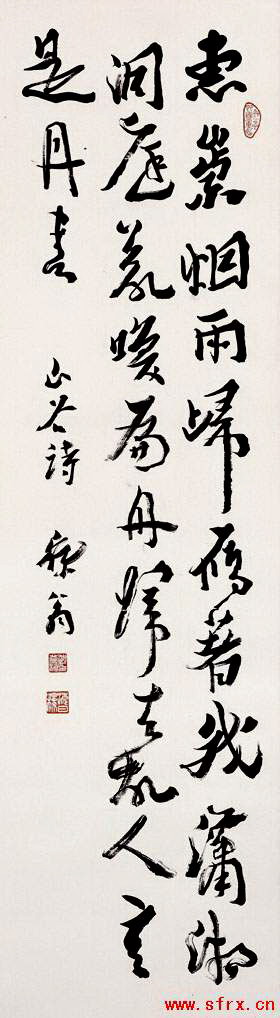 惠崇烟雨歸雁著我瀟湘
洞庭喚扁舟歸去故人言
是丹青
山谷詩 翁
www.sfrx.cn